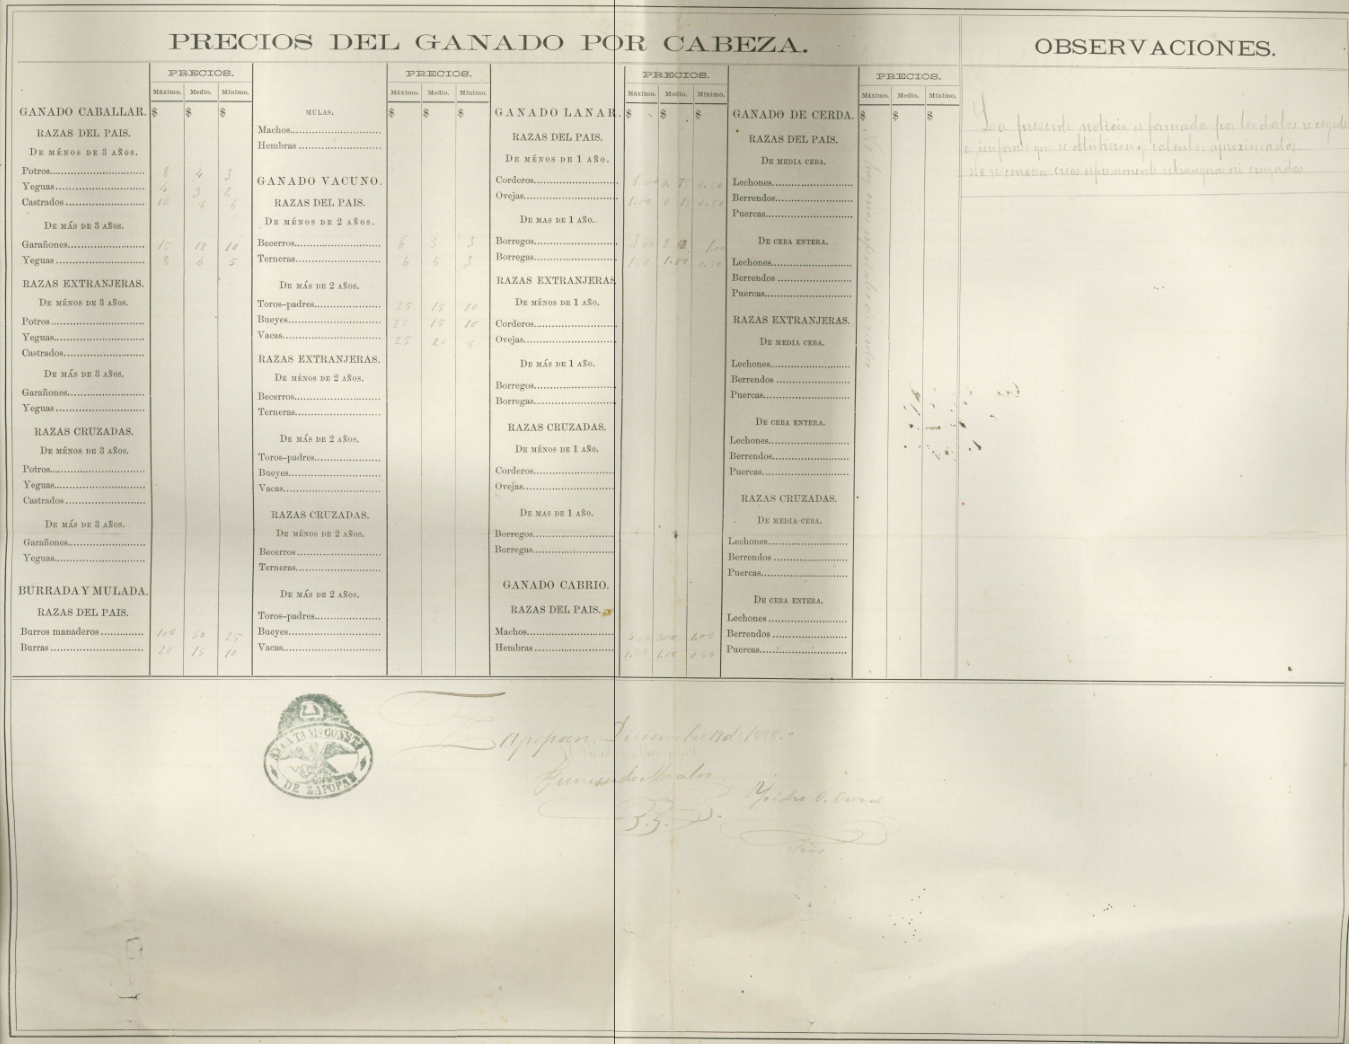 PRECIOS DEL GANADO POR CABEZA.
PRECIOS.
Máximo. Medio. Mínimo.
GANADO CABALLAR. $ $ $
RAZAS DEL PAIS.
DE MÉNOS DE 3 AÑOS.
Potros 8 4 3
Yeguas 4 3 2
Castrados 10 8 6
DE MÁS DE 3 AÑOS.
Garañones 15 12 10
Yeguas 8 6 5
RAZAS EXTRANJERAS.
DE MÉNOS DE 3 AÑOS.
Potros
Yeguas
Castrados
DE MÁS DE 3 AÑOS.
Garañones
Yeguas
RAZAS CRUZADAS.
DE MÉNOS DE 3 AÑOS.
Potros
Yeguas
Castrados
DE MÁS DE 3 AÑOS.
Garañones
Yeguas
BURRADA Y MULADA.
RAZAS DEL PAIS.
Burros manaderos 100 50 25
Burras 20 15 10
PRECIOS.
Máximo. Medio. Mínimo.
$ $ $
MULAS.
Machos
Hembras
GANADO VACUNO.
RAZAS DEL PAIS.
DE MÉNOS DE 2 AÑOS.
Becerros 6 5 3
Terneras 6 3
DE MÁS DE 2 AÑOS.
Toros-padres 25 15 10
Bueyes 15 10
Vacas 25
RAZAS EXTRANJERAS.
DE MÉNOS DE 2 AÑOS.
Becerros
Terneras
DE MÁS DE 2 AÑOS.
Toros-padres
Bueyes
Vacas
RAZAS CRUZADAS.
DE MÉNOS DE 2 AÑOS.
Becerros
Terneras
DE MÁS DE 2 AÑOS.
Toros-padres
Bueyes
Vacas
PRECIOS.
Máximo. Medio. Mínimo.
GANADO LANAR. $ $ $
RAZAS DEL PAIS.
DE MÉNOS DE 1 AÑO.
Corderos
Ovejas 1.00 0.50
DE MAS DE 1 AÑO.
Borregos 1.00
Borregas 1.00 0.50
RAZAS EXTRANJERAS
DE MÉNOS DE 1 AÑO.
Corderos
Ovejas
DE MÁS DE 1 AÑO.
Borregos
Borregas
RAZAS CRUZADAS.
DE MÉNOS DE 1 AÑO.
Corderos
Ovejas
DE MAS DE 1 AÑO.
Borregos
Borregas
GANADO CABRIO.
RAZAS DEL PAIS.
Machos
Hembras 1.50 1.00 0.50
PRECIOS.
Máximo. Medio. Mínimo.
GANADO DE CERDA. $ $ $
RAZAS DEL PAIS.
DE MEDIA CEBA.
Lechones
Berrendos
Puercas
DE CEBA ENTERA.
Lechones
Berrendos
Puercas
RAZAS EXTRANJERAS.
DE MEDIA CEBA.
Lechones
Berrendos
Puercas
DE CEBA ENTERA.
Lechones
Berrendos
Puercas
RAZAS CRUZADAS.
DE MEDIA-CEBA.
Lechones
Berrendos
Puercas
DE CEBA ENTERA.
Lechones
Berrendos
Puercas
OBSERVACIONES.
La presente noticia es formada por los datos
é informes que se obtuvieron y cálculos aproximados.
No se conocen crias espresamente estrangeras ni cruzadas
DE ZAPOPAN
Zapopan, Diciembre